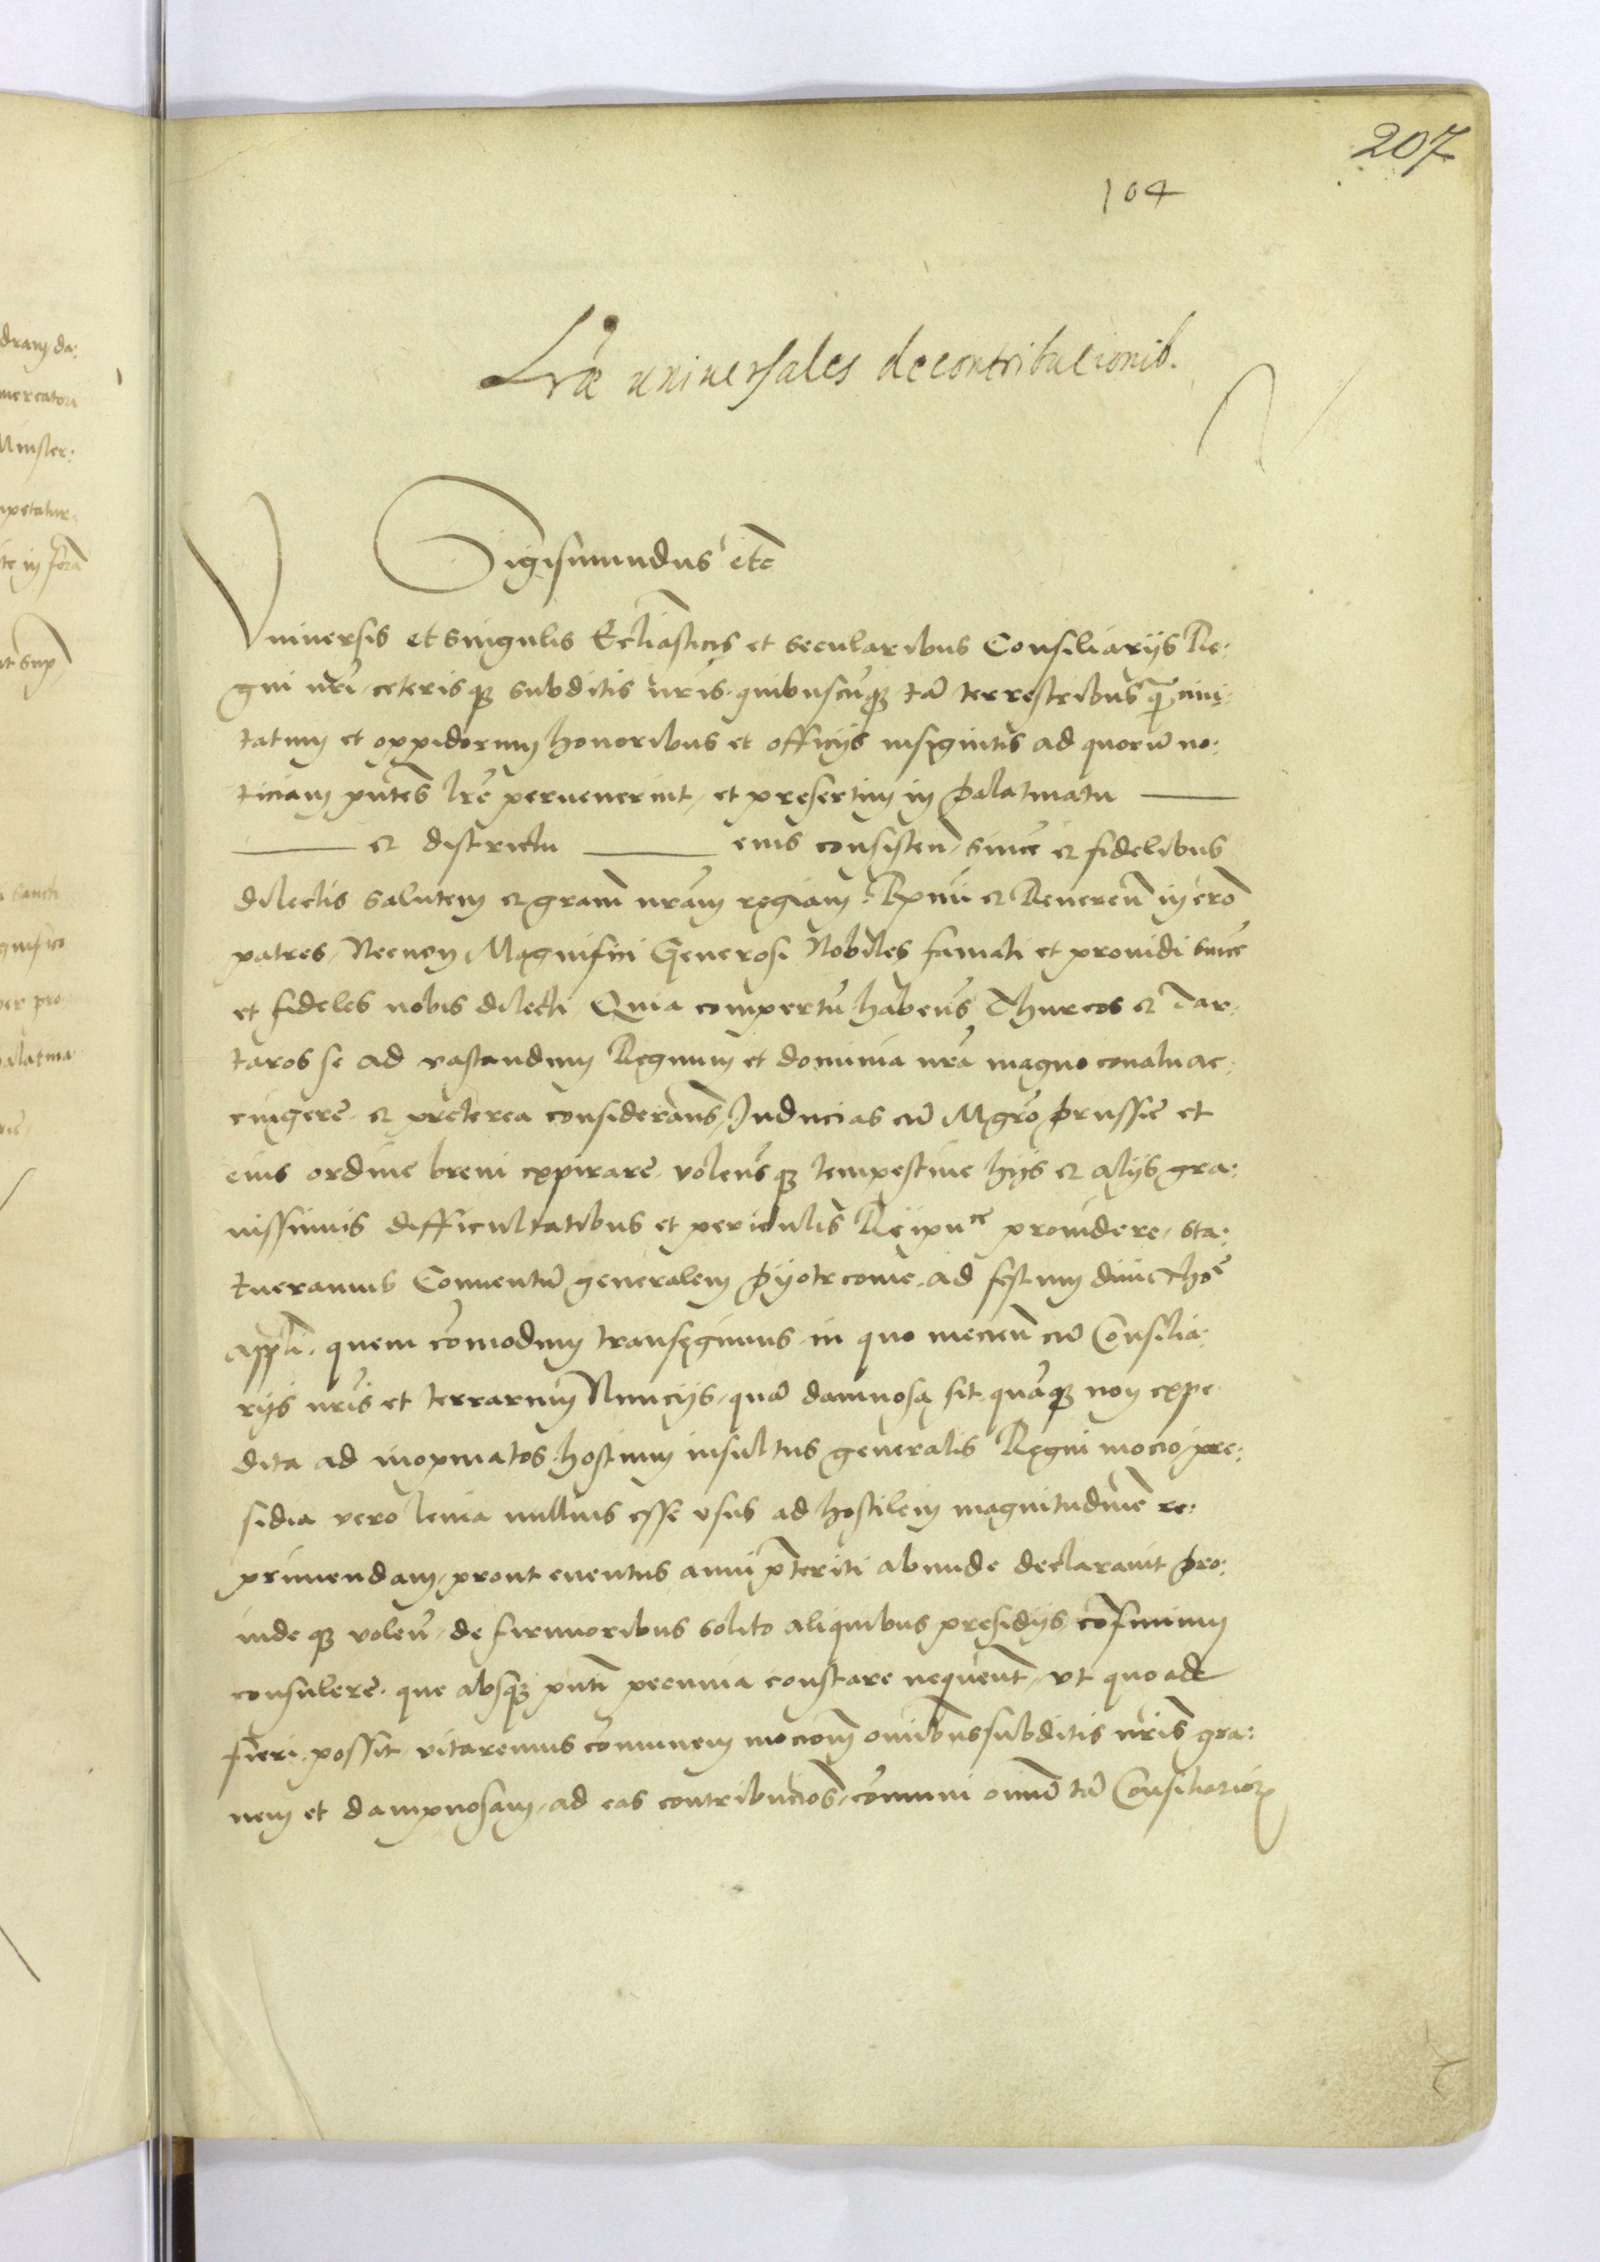 207
104
Lr̃æ uniuersales de contributionib.
Sigismundus etc̃
Vniuersis et singulis Ecl̃iasticis et secularibus Consiliarijs Re:
gni nr̃i ceterisqꝫ subditis nr̃is quibuscũqꝫ tã terrestribus q̃ ciui:
tatum et oppidorum honoribus et officijs insignitis ad quorũ no:
ticiam pñtes lr̃e peruenerint, et presertim in Palatinatu
et districtu eius consisten̄ sinc̃e et fidelibus
dilectis salutem et gram̃ nr̃am regiam. Rp̃mi et Reueren̄ in cr̃o
patres, Necnon Magnifici Generosi Nobiles famati et prouidi sinc̃e
et fideles nobis dilecti Quia compertũ haben̄s Thurcos et Tar:
taros se ad vastandum Regnum et dominia nr̃a magno conatu ac:
cingere, et preterea consideran̄s Inducias cũ Mgr̃o Prussie et
eius ordine breui expirare, volen̄sqꝫ tempestiue hijs et alijs gra:
uissimis difficultatibus et periculis Reipu^ce prouidere, sta:
tueramus Conuentũ generalem Pijotrcouie ad festum diui Tho^e
app̃li, quem cõmodum transegimus in quo mecien̄ cũ Consilia:
rijs nr̃is et terrarum Nuncijs, quã damnosa sit quãqꝫ non expe
dita ad inopinatos hostium insultus generalis Regni mocio, pre:
sidia vero leuia nullius esse vsus ad hostilem magnitudinẽ re:
primendam, prout euentus anni p̃teriti abunde declarauit Pro:
indeqꝫ volen̄ de firmioribus solito aliquibus presidijs cõfinium
consulere, que absqꝫ pñti pecunia constare nequeunt, vt quoad
fieri possit vitaremus cõmunem mocion̄ om̃ibus subditis nr̃is gra:
uem et dampnosam, ad eas contribucion̄s, cõmuni om̃iũ tũ Consiliarioꝝ